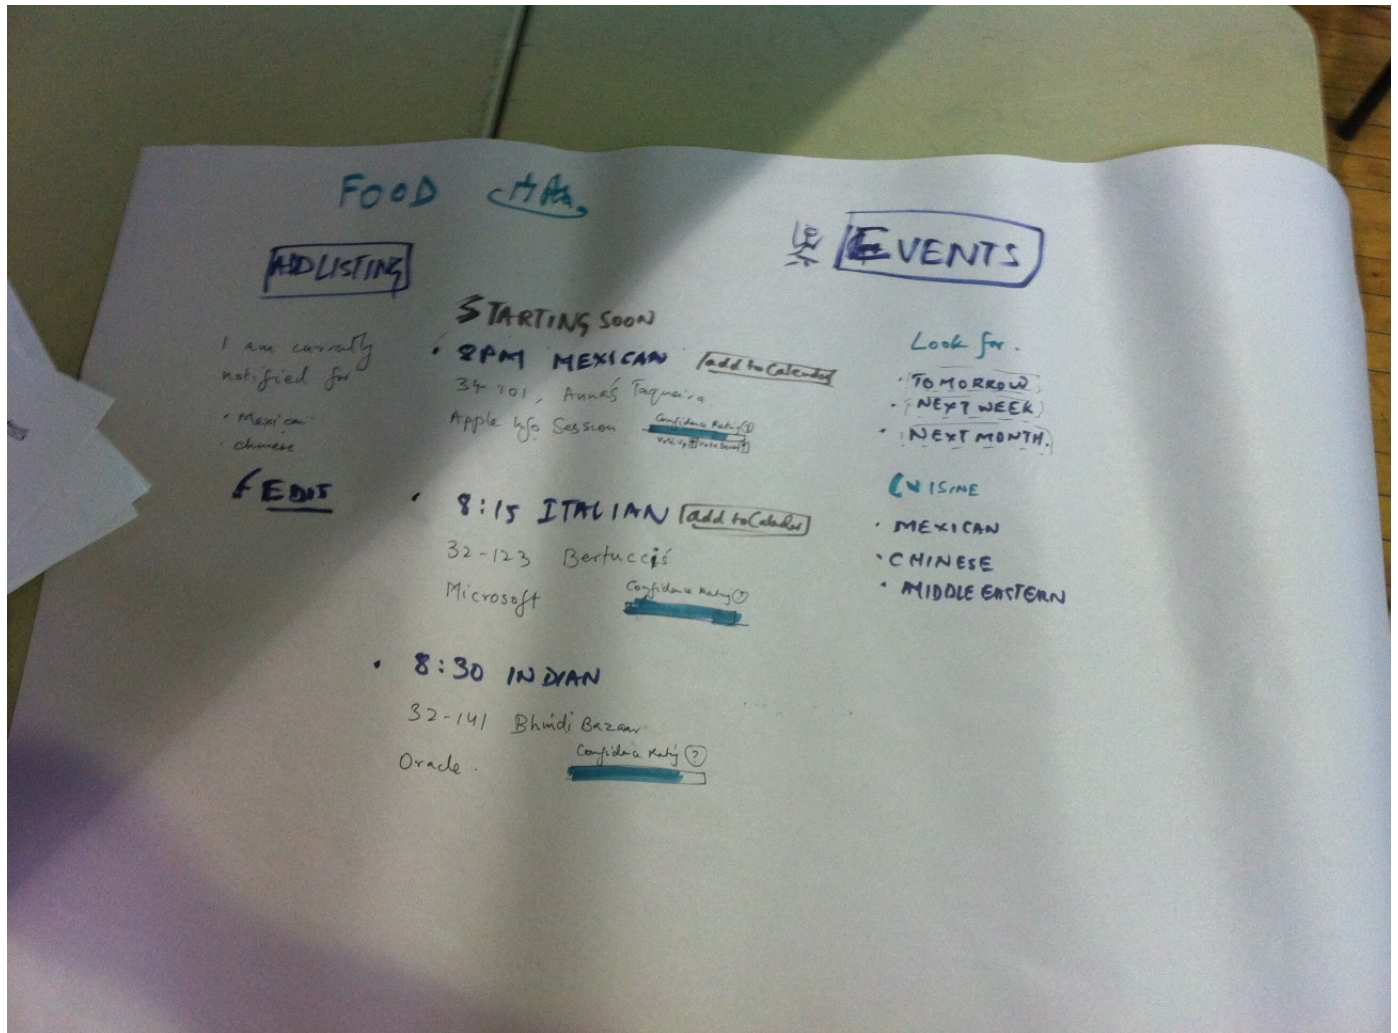 FOOD
ADD LISTING
EVENTS
I am currently
notified for
• Mexican
• chinese
EDIT
STARTING SOON
• 8PM MEXICAN add to Calendar
34-101, Anna's Taqueira
Apple Info Session Confidence Rating ?
Vote Up Vote Down
• 8:15 ITALIAN add to Calendar
32-123 Bertucci's
Microsoft Confidence Rating ?
• 8:30 INDIAN
32-141 Bhindi Bazaar
Oracle. Confidence Rating ?
Look for.
• TOMORROW
• NEXT WEEK
• NEXT MONTH.
CUISINE
• MEXICAN
• CHINESE
• MIDDLE EASTERN